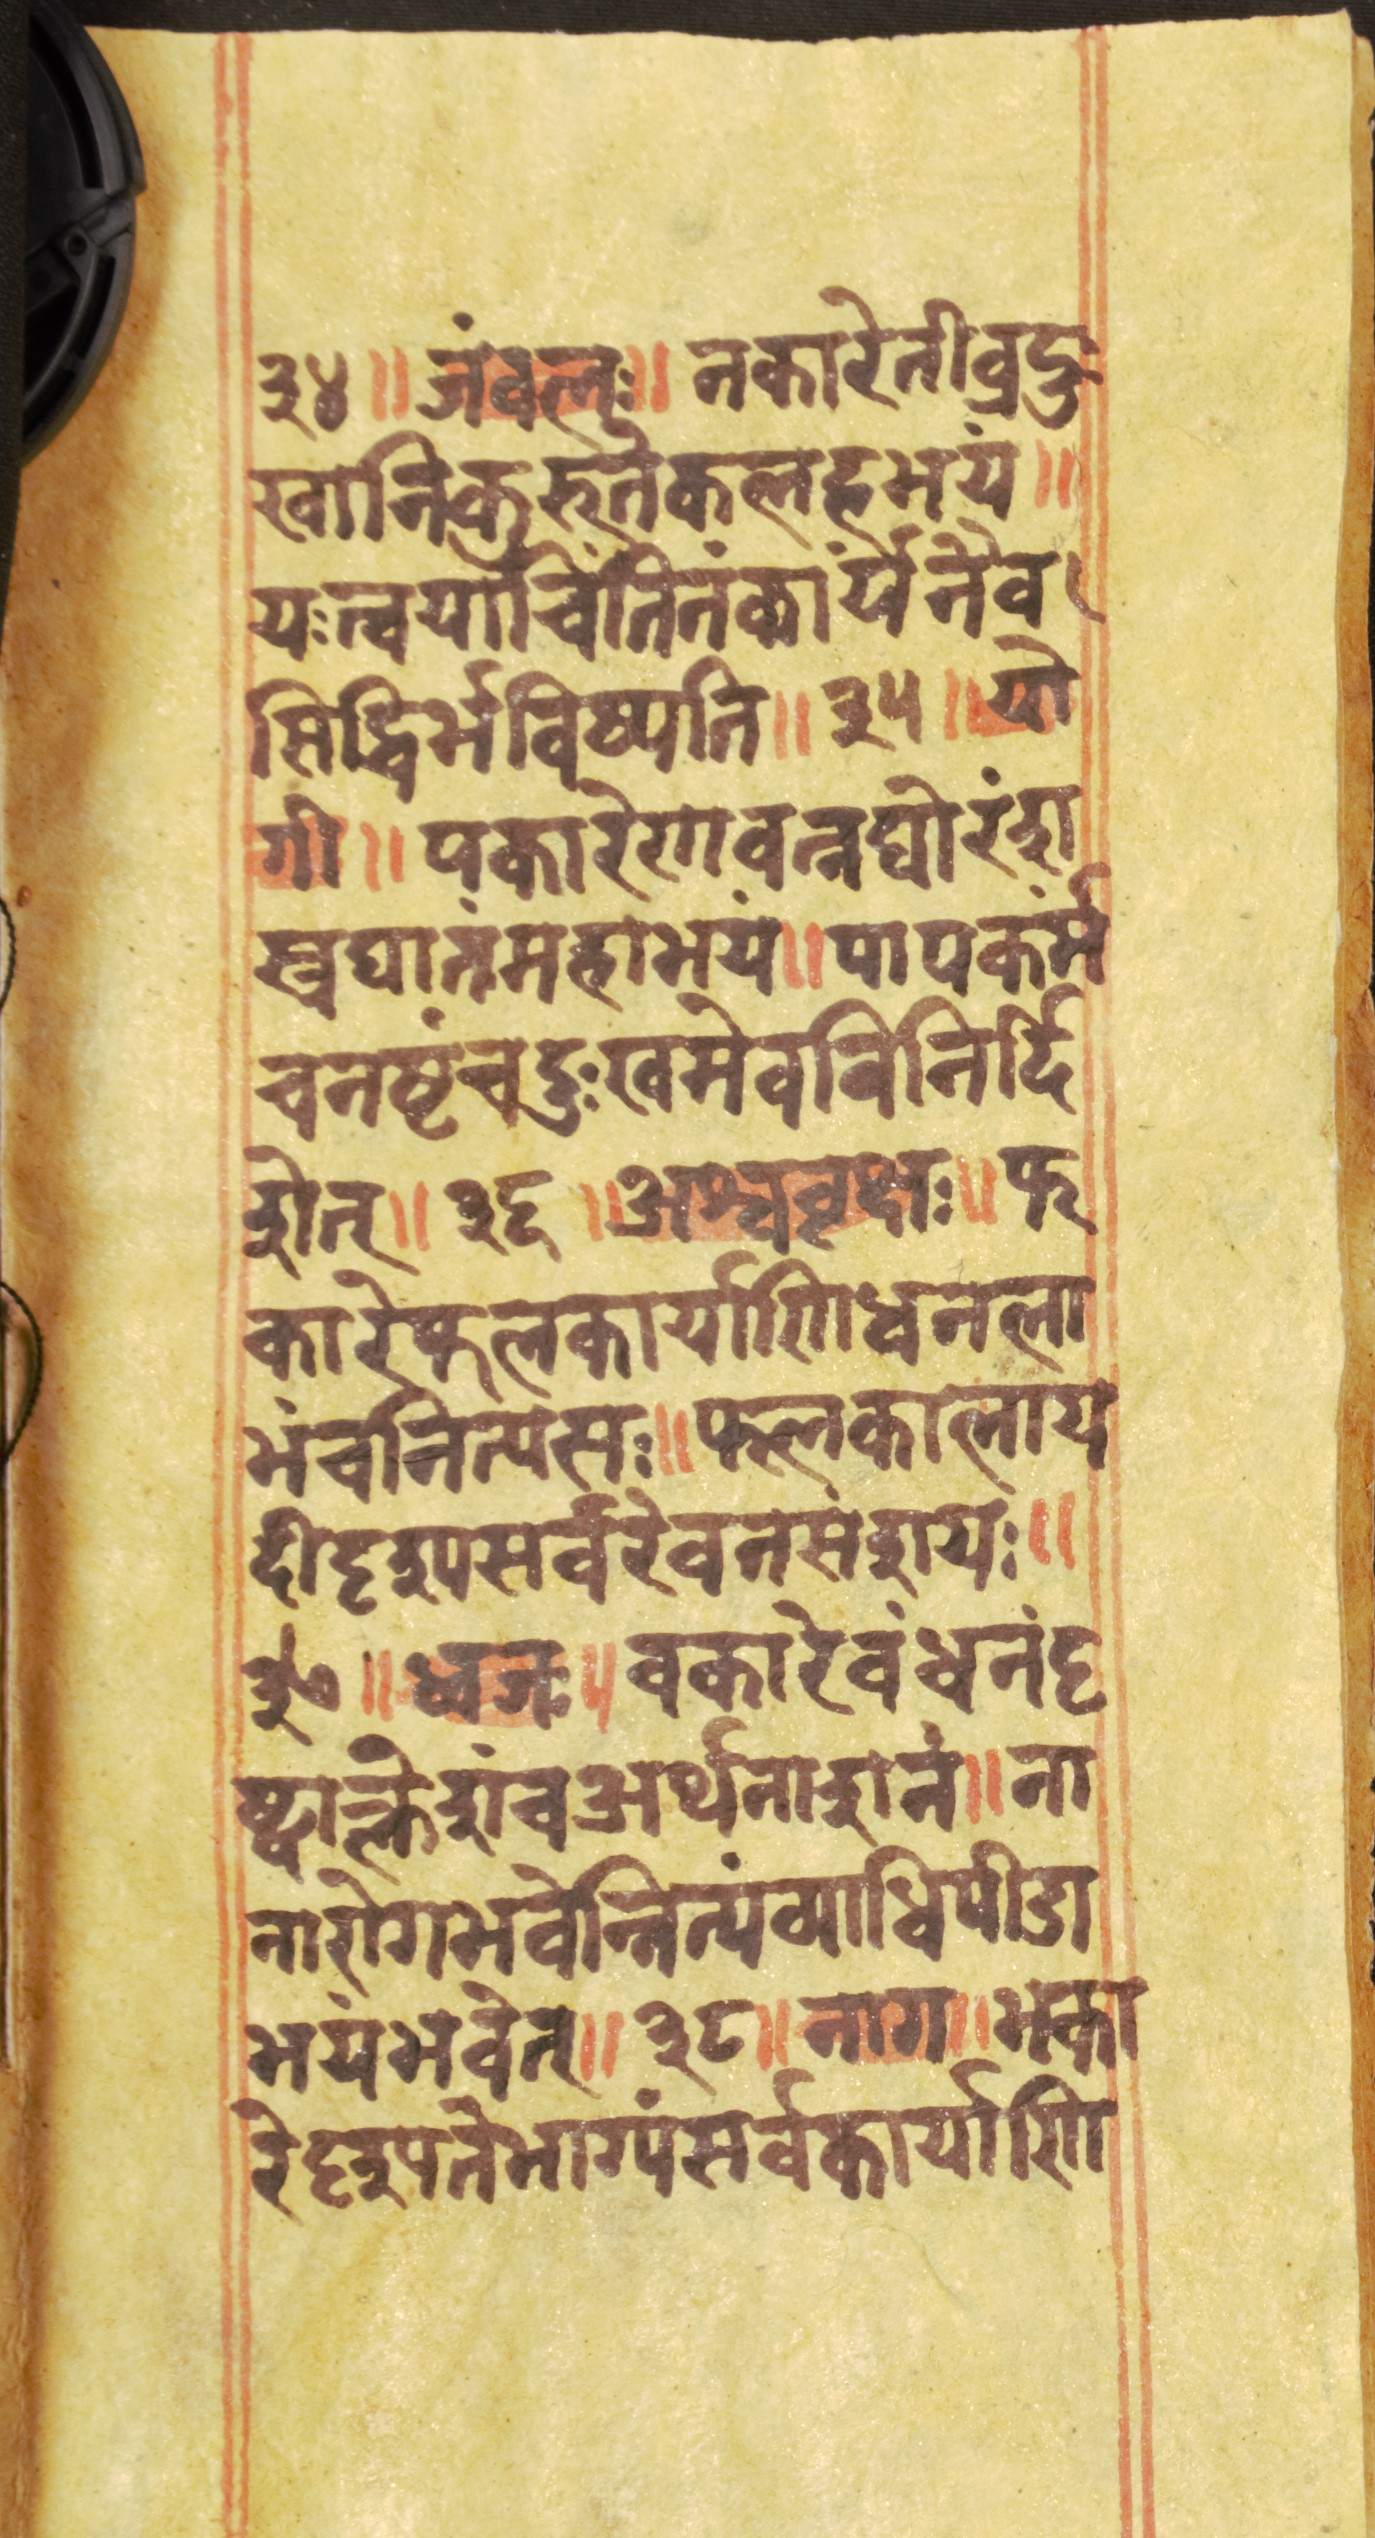 ३४ ॥ जंवलः ॥ नकारेतीव्रदुः
खानिकुरुतेकलहभयं ॥
यःत्वयांचिंतितंकार्यंनैव
सिद्धिर्भविष्यति ॥ ३५ ॥ यो
गी ॥ पकारेणवन्नघोरंश
स्त्रघातंमहाभयं ॥ पापकर्मं
चनष्टंचदुःखमेवविनिर्दि
शेत् ॥ ३६ ॥ अश्ववृक्षः ॥ फ
कारेफलकार्याणिधनला
भंचनित्यसः ॥ फलकालाय
दीदृश्यसर्वरेवनसंशयः ॥
३७ ॥ ध्वजः ॥ वकारेवंधनंदृ
ष्ट्वाक्लेशंचअर्थनाशनं ॥ ना
नारोगभवेन्नित्यंव्याधिपीडा
भयंभवेत् ॥ ३८ ॥ नाग ॥ भका
रेदृश्यतेभाग्यंसर्वकार्याणि